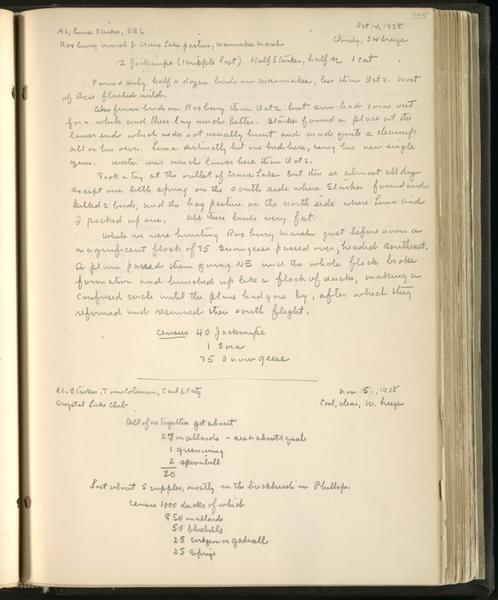 355
AL, Luna Starker, EBL Oct 14, 1928
Roxbury marsh & Crane Lake pasture, Waunakee marsh Cloudy, SW breeze
12 Jacksnipe (1 cripple lost). Half Starker, half AL 1 cat
Found only half a dozen birds on Waunakee, less than Oct 2. Most
of these flushed wild.
Also fewer birds on Roxbury than Oct 2 but sun had come out
for a while and these lay much better. Starker found a place at the
lower end which we do not usually hunt and made quite a cleanup
all on his own. Luna distinctly hit one bird here, using his new single
gun. Water was much lower here than Oct 2.
Took a try at the outlet of Crane Lake but this is almost all dry
except one little spring on the south side where Starker found and
killed 2 birds, and the hog pasture on the north side where Luna and
I picked up one. All these birds very fat.
While we were hunting Roxbury marsh just before noon a
magnificent flock of 75 Snow geese passed over, headed southeast.
A plane passed them going NE and the whole flock broke
formation and bunched up like a flock of ducks, making a
confused circle until the plane had gone by, after which they
reformed and resumed their south flight.
Census 40 Jacksnipe
1 Sora
75 Snow geese
AL, Starker, Tom Coleman, Carl & Fritz Nov 5, 1928
Crystal Lake Club Cool, clear, W. breeze
All of us together got about
27 mallards - each about equal
1 greenwing
2 spoonbill
30
Lost about 5 cripples, mostly in the buckbrush in Phillips.
Census 1000 ducks of which
850 mallards
50 bluebills
25 widgeon or gadwall
25 sprigs